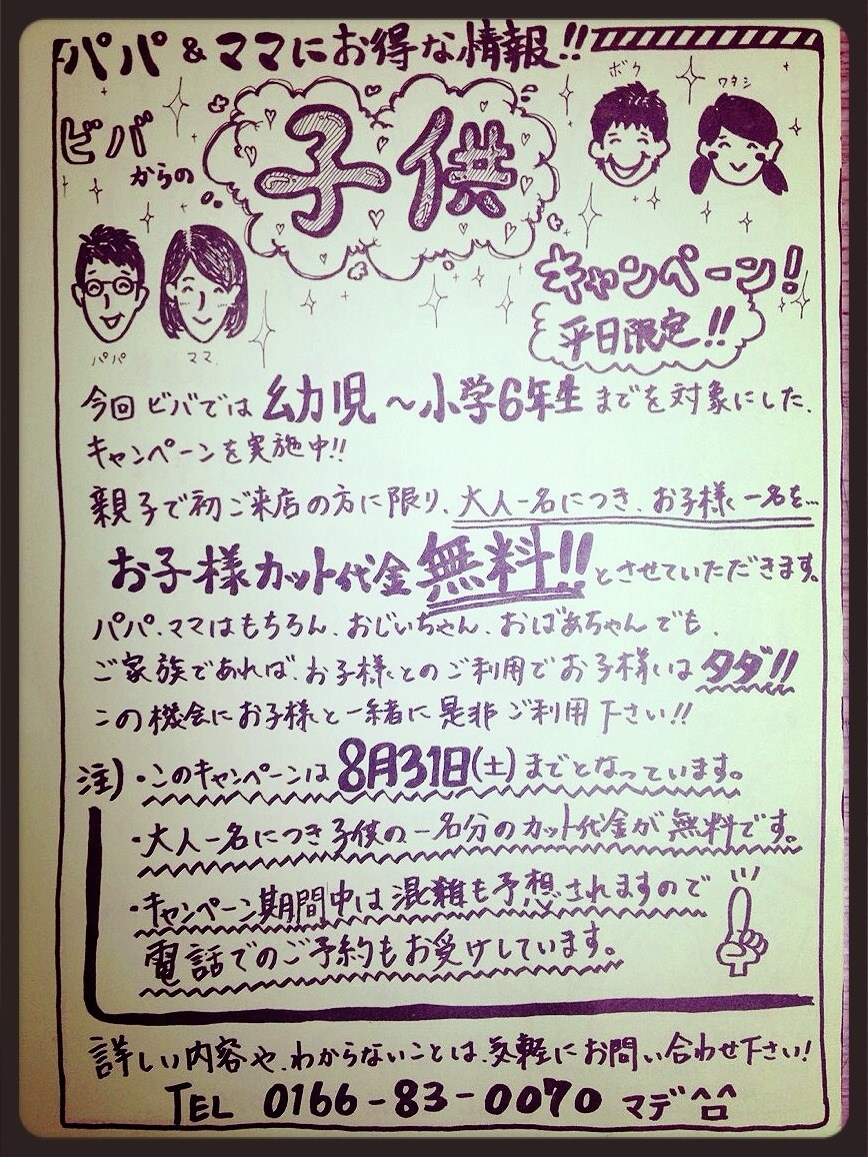 パパ&ママにお得な情報!!
ボク
ワタシ
ビバ
からの
子供
キャンペーン!
平日限定!!
パパ
ママ.
今回 ビバでは 幼児～小学6年生 までを対象にした、
キャンペーンを実施中!!
親子で初ご来店の方に限り、大人一名につき、お子様一名を…
お子様カット代金無料!!とさせていただきます。
パパ、ママはもちろん、おじいちゃん、おばあちゃんでも、
ご家族であれば、お子様とのご利用でお子様はタダ!!
この機会にお子様と一緒に是非ご利用下さい!!
注)・このキャンペーンは8月31日(土)までとなっています。
・大人一名につき子供の一名分のカット代金が無料です。
・キャンペーン期間中は混雑も予想されますので
電話でのご予約もお受けしています。
詳しい内容や、わからないことは、気軽にお問い合わせ下さい!
TEL 0166-83-0070 マデ^^